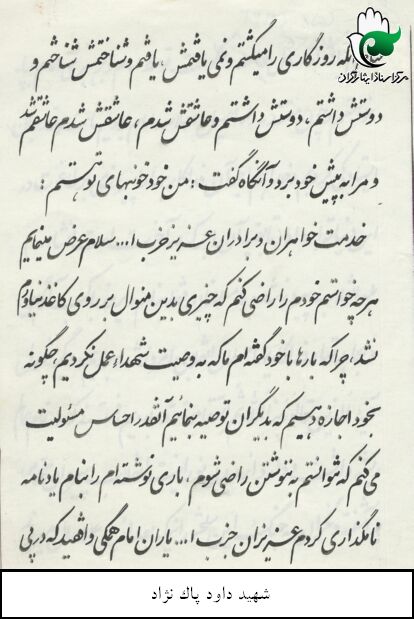 مرکز اسناد ایثارگران
آنکه روزگاری را میگشتم و نمی یافتمش، یافتم و شناختمش شناختم و
دوستش داشتم، دوستش داشتم و عاشقش شدم، عاشقش شدم عاشقم شد
و مرا به پیش خود برد و آنگاه گفت: من خود خونبهای تو هستم:
خدمت خواهران و برادران عزیز حزب ا... سلام عرض مینمایم
هر چه خواستم خودم را راضی کنم که چیزی بدین منوال بر روی کاغذ نیاورم
نشد، چرا که بارها با خود گفته ام ما که به وصیت شهداء عمل نکردیم، چگونه
بخود اجازه دهیم که بدیگران توصیه بنمائیم آنقدر احساس مسئولیت
می کنم که نتوانستم به ننوشتن راضی شوم، باری نوشته ام را بنام یادنامه
نامگذاری کردم عزیزان حزب ا... یاران امام همگی واقفید که در پی
شهید داود پاک نژاد